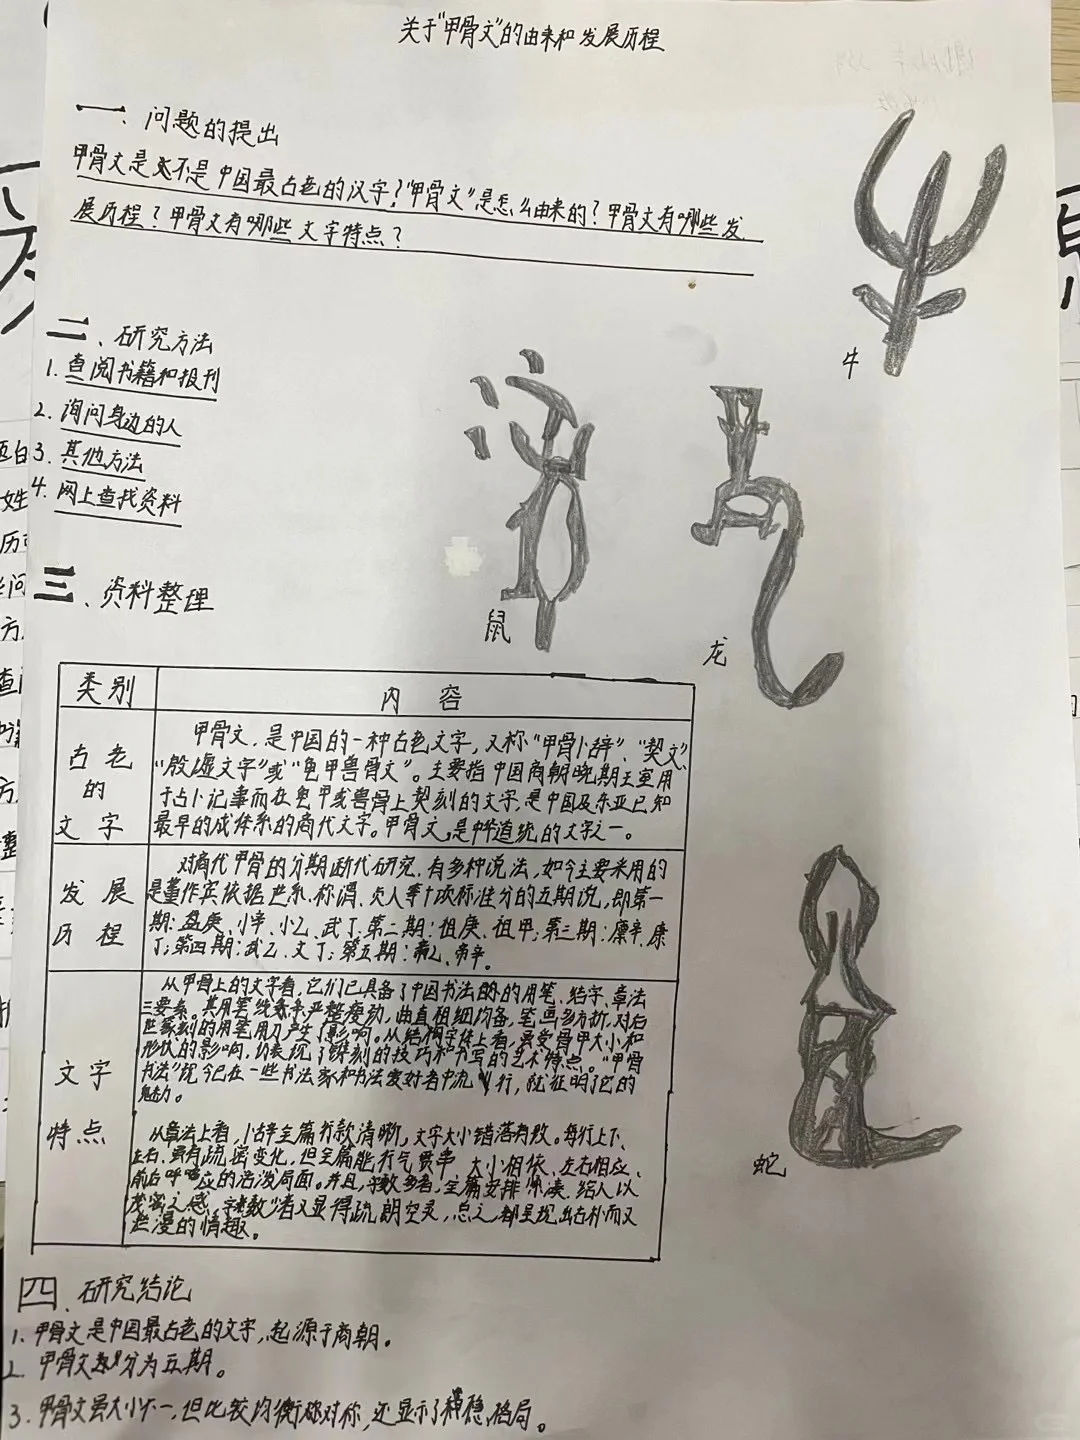 关于“甲骨文”的由来和发展历程
一、问题的提出
甲骨文是不是中国最古老的汉字？“甲骨文”是怎么由来的？甲骨文有哪些发
展历程？甲骨文有哪些文字特点？
牛
二、研究方法
1. 查阅书籍和报刊
2. 询问身边的人
3. 其他方法
4. 网上查找资料
鼠
龙
三、资料整理
类别
内 容
古老
的
文字
甲骨文，是中国的一种古老文字，又称“甲骨卜辞”、“契文”、
“殷墟文字”或“龟甲兽骨文”。主要指中国商朝晚期王室用
于占卜记事而在龟甲或兽骨上契刻的文字，是中国及东亚已知
最早的成体系的商代文字。甲骨文，是中华道统的文字之一。
发展
历程
对商代甲骨的分期断代研究，有多种说法，如今主要采用的
是董作宾依据世系、称谓、贞人等十项标准分的五期说，即第一
期：盘庚、小辛、小乙、武丁；第二期：祖庚、祖甲；第三期：廪辛、康
丁；第四期：武乙、文丁；第五期：帝乙、帝辛。
文字
特点
从甲骨上的文字看，它们已具备了中国书法的用笔、结字、章法
三要素。其用笔线条严整瘦劲，曲直粗细均备，笔画多方折，对后
世篆刻的用笔用刀产生了影响。从结构字体上看，虽受骨甲大小和
形状的影响，仍表现了镌刻的技巧和书写的艺术特点。“甲骨
书法”现今已在一些书法家和书法爱好者中流行，就证明了它的
魅力。
从章法上看，卜辞全篇行款清晰，文字大小错落有致。每行上下、
左右，虽有疏密变化，但全篇能行气贯串、大小相依、左右相应、
前后呼应的活泼局面。并且，字数多者，全篇安排紧凑，给人以
茂密之感，字数少者又显得疏朗空灵，总之，都呈现出古朴而又
烂漫的情趣。
蛇
四、研究结论
1. 甲骨文是中国最古老的文字，起源于商朝。
2. 甲骨文分为五期。
3. 甲骨文虽大小不一，但比较均衡对称，还显示了稳定格局。